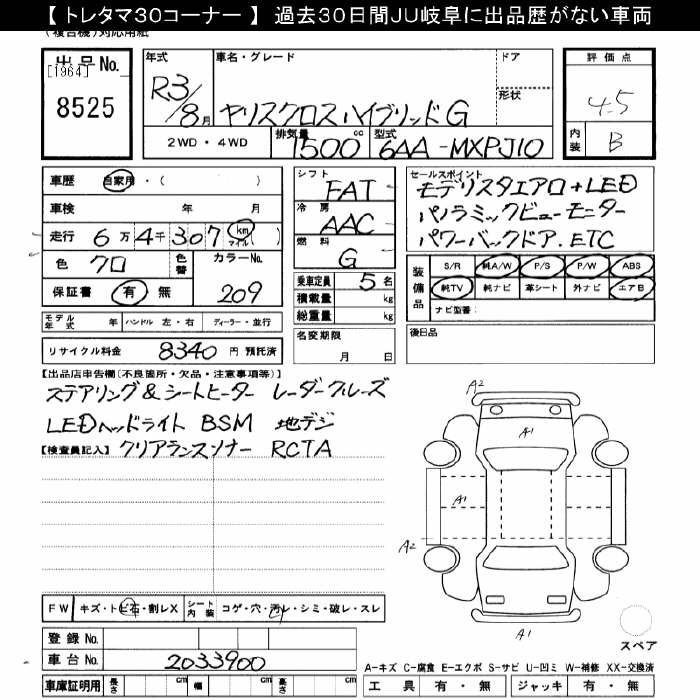 【 トレタマ３０コーナー 】 過去３０日間ＪＵ岐阜に出品歴がない車両
(複合機)対応用紙
出品No.
[1964]
8525
年式
R3/8月
車名・グレード
ヤリスクロスハイブリッドG
ドア
形状
2WD・4WD
排気量
1500 cc
型式
6AA-MXPJ10
評価点
4.5
内装
B
車歴 自家用・( )
車検 年 月
走行 6万4千307 km マイル ( )
色 クロ 色替 カラーNo. 209
保証書 有 無
モデル年式 年 ハンドル 左・右 ディーラー・並行
リサイクル料金 8340 円 預託済
シフト
FAT
冷房
AAC
燃料
G
乗車定員 5 名
積載量 kg
総重量 kg
名変期限
月 日
セールスポイント
モデリスタエアロ+LED
パノラミックビューモニター
パワーバックドア.ETC
装備品
S/R 純A/W P/S P/W ABS
純TV 純ナビ 革シート 外ナビ エアB
ナビ型番:
後日品
【出品店申告欄(不良箇所・欠品・注意事項等)】
ステアリング&シートヒーター レーダークルーズ
LEDヘッドライト BSM 地デジ
クリアランスソナー RCTA
【検査員記入】
A2
A1
A1
A2
A1
スペア
FW キズ・トビ石・割レX シート内装 コゲ・穴・汚レ・シミ・破レ・スレ
登録No.
車台No. 2033900
車庫証明用 長さ cm 幅 cm 高さ cm
A-キズ C-腐食 E-エクボ S-サビ U-凹ミ W-補修 XX-交換済
工具 有・無 ジャッキ 有・無